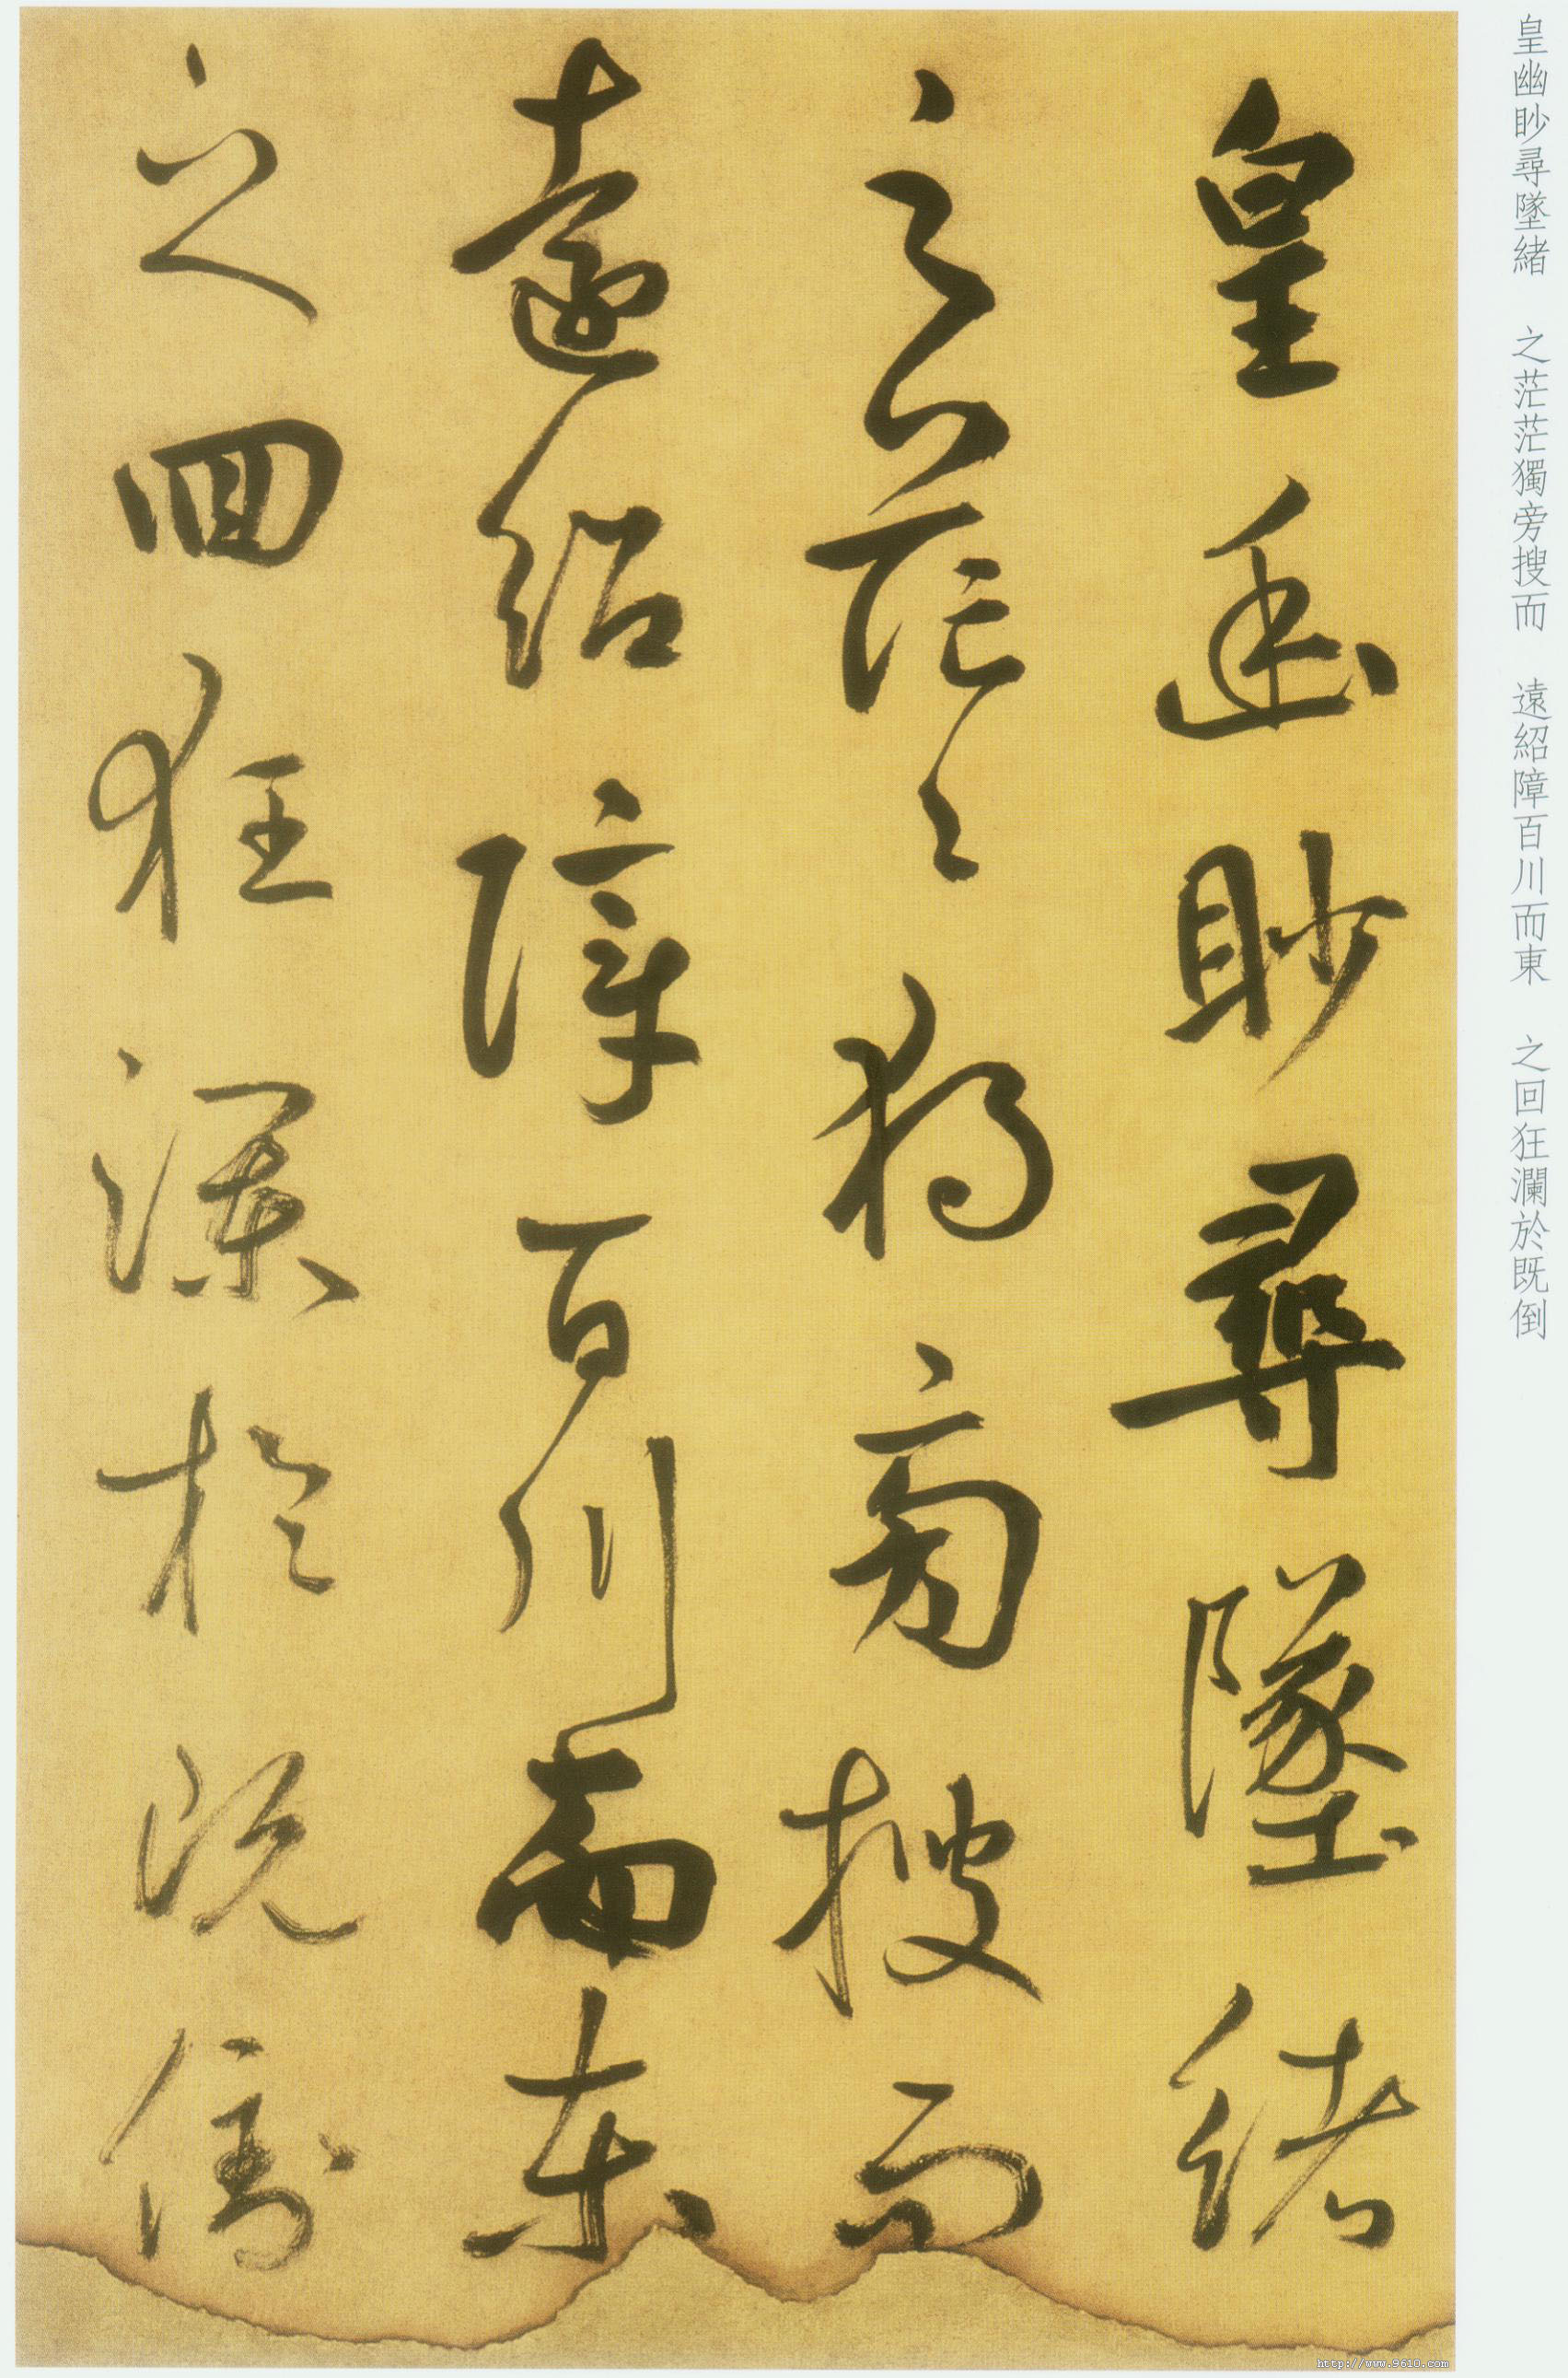 皇幽眇尋墜緒
之茫〻獨旁搜而
遠紹障百川而東
之回狂瀾於既倒
皇幽眇尋墜緒　之茫茫獨旁搜而　遠紹障百川而東　之回狂瀾於既倒
http://www.9610.com